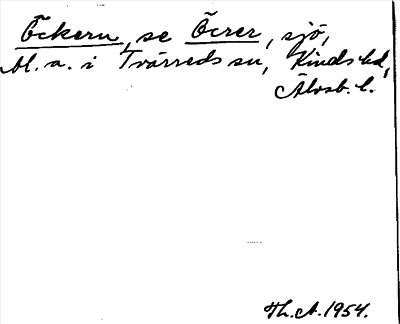 Öckern, se Öcrer, sjö,
bl. a. i Tvärreds sn, Kinds hd,
Älvsb. l.
Th. A. 1954.